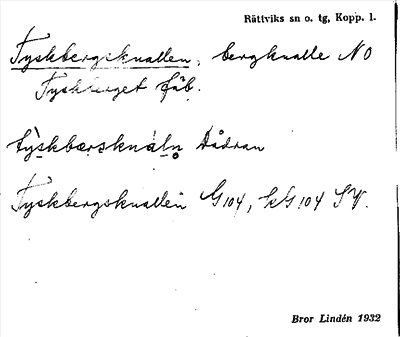 Rättviks sn o. tg, Kopp. l.
Tyskbergsknallen, bergknalle NO
Tyskberget fäb.
Dådran
Tyskbergsknallen G104, kG104 SV.
Bror Lindén 1932